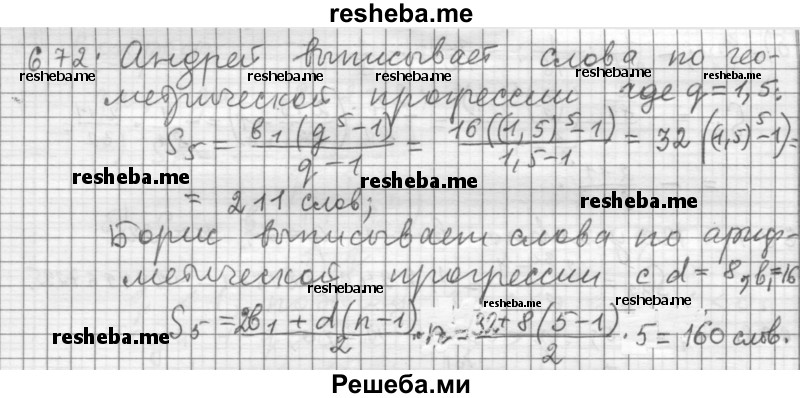 resheba.me
672. Андрей выписывает слова по гео-
resheba.me resheba.me resheba.me resheba.me resheba.me
метрической прогрессии где q = 1,5:
S₅ = b₁(q⁵-1)/(q-1) = 16((1,5)⁵-1)/(1,5-1) = 32((1,5)⁵-1) =
resheba.me resheba.me
= 211 слов; resheba.me
Борис выписывает слова по ариф-
метической прогрессии с d = 8, b₁ = 16
resheba.me resheba.me resheba.me
S₅ = (2b₁ + d(n-1))/2 · n = (32 + 8(5-1))/2 · 5 = 160 слов.
resheba.me resheba.me
Решеба.ми